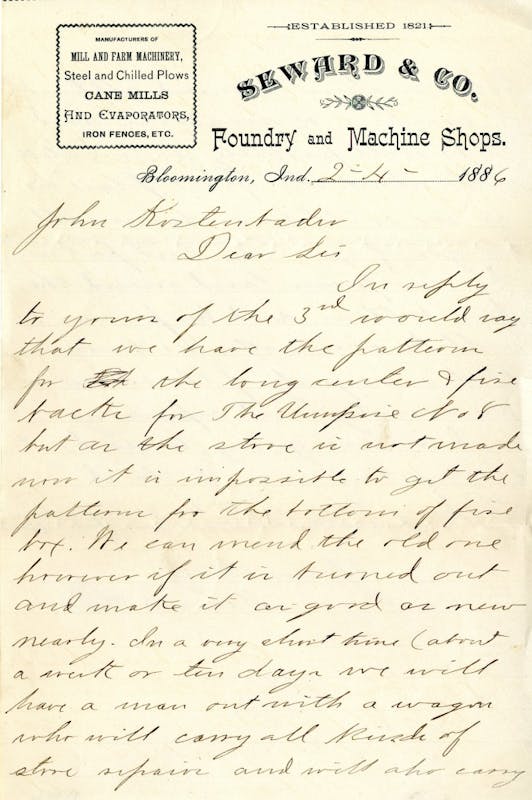 MANUFACTURERS OF
MILL AND FARM MACHINERY,
Steel and Chilled Plows
CANE MILLS
AND EVAPORATORS,
IRON FENCES, ETC.
ESTABLISHED 1821
SEWARD & CO.
Foundry and Machine Shops.
Bloomington, Ind. 2-4- 1886
John Kostenbader
Dear Sir
In reply
to yours of the 3rd would say
that we have the pattern
for the long center & fire
backs for The Umpire No 8
but as the stove is not made
now it is impossible to get the
pattern for the bottom of fire
box. We can mend the old one
however if it is burned out
and make it as good as new
nearly. In a very short time (about
a week or ten days we will
have a man out with a wagon
who will carry all kinds of
stove repairs and will also carry